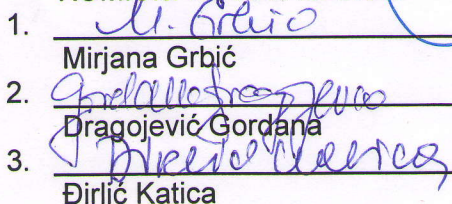 1. M. Grbić
Mirjana Grbić
2. Gordana Dragojević
Dragojević Gordana
3. Đirlić Katica
Đirlić Katica